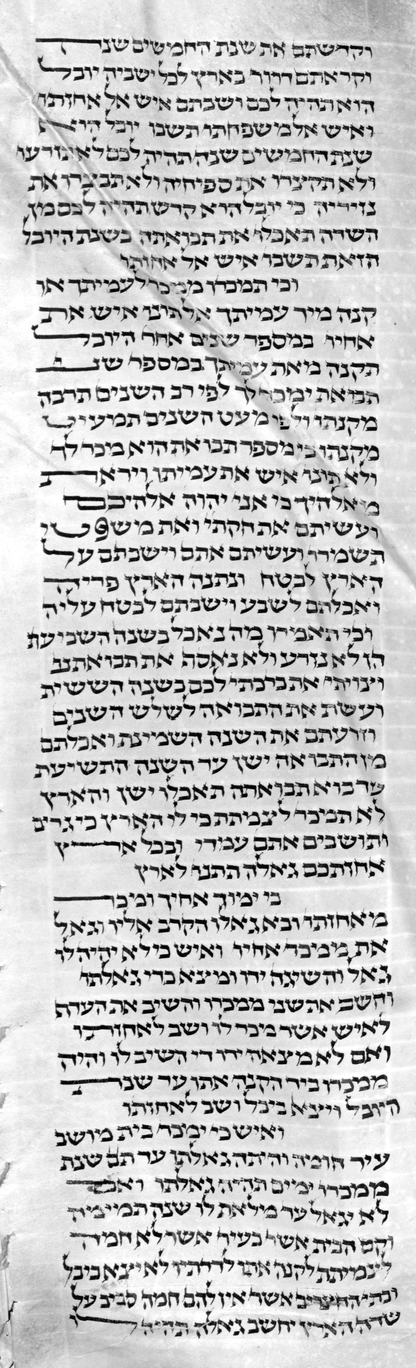 וקדשתם את שנת החמשים שנה
וקראתם דרור בארץ לכל ישביה יובל
הוא תהיה לכם ושבתם איש אל אחזתו
ואיש אל משפחתו תשבו יובל היא
שנת החמשים שנה תהיה לכם לא תזרעו
ולא תקצרו את ספיחיה ולא תבצרו את
נזיריה כי יובל הוא קדש תהיה לכם מן
השדה תאכלו את תבואתה בשנת היובל
הזאת תשבו איש אל אחזתו
וכי תמכרו ממכר לעמיתך או
קנה מיד עמיתך אל תונו איש את
אחיו במספר שנים אחר היובל
תקנה מאת עמיתך במספר שני
תבואת ימכר לך לפי רב השנים תרבה
מקנתו ולפי מעט השנים תמעיט
מקנתו כי מספר תבואת הוא מכר לך
ולא תונו איש את עמיתו ויראת
מאלהיך כי אני יהוה אלהיכם
ועשיתם את חקתי ואת משפטי
תשמרו ועשיתם אתם וישבתם על
הארץ לבטח ונתנה הארץ פריה
ואכלתם לשבע וישבתם לבטח עליה
וכי תאמרו מה נאכל בשנה השביעת
הן לא נזרע ולא נאסף את תבואתנו
וצויתי את ברכתי לכם בשנה הששית
ועשת את התבואה לשלש השנים
וזרעתם את השנה השמינת ואכלתם
מן התבואה ישן עד השנה התשיעת
עד בוא תבואתה תאכלו ישן והארץ
לא תמכר לצמיתת כי לי הארץ כי גרים
ותושבים אתם עמדי ובכל ארץ
אחזתכם גאלה תתנו לארץ
כי ימוך אחיך ומכר
מאחזתו ובא גאלו הקרב אליו וגאל
את ממכר אחיו ואיש כי לא יהיה לו
גאל והשיגה ידו ומצא כדי גאלתו
וחשב את שני ממכרו והשיב את העדף
לאיש אשר מכר לו ושב לאחזתו
ואם לא מצאה ידו די השיב לו והיה
ממכרו ביד הקנה אתו עד שנת
היובל ויצא ביבל ושב לאחזתו
ואיש כי ימכר בית מושב
עיר חומה והיתה גאלתו עד תם שנת
ממכרו ימים תהיה גאלתו ואם
לא יגאל עד מלאת לו שנה תמימה
וקם הבית אשר בעיר אשר לא חמה
לצמיתת לקנה אתו לדרתיו לא יצא ביבל
ובתי החצרים אשר אין להם חמה סביב על
שדה הארץ יחשב גאלה תהיה לו